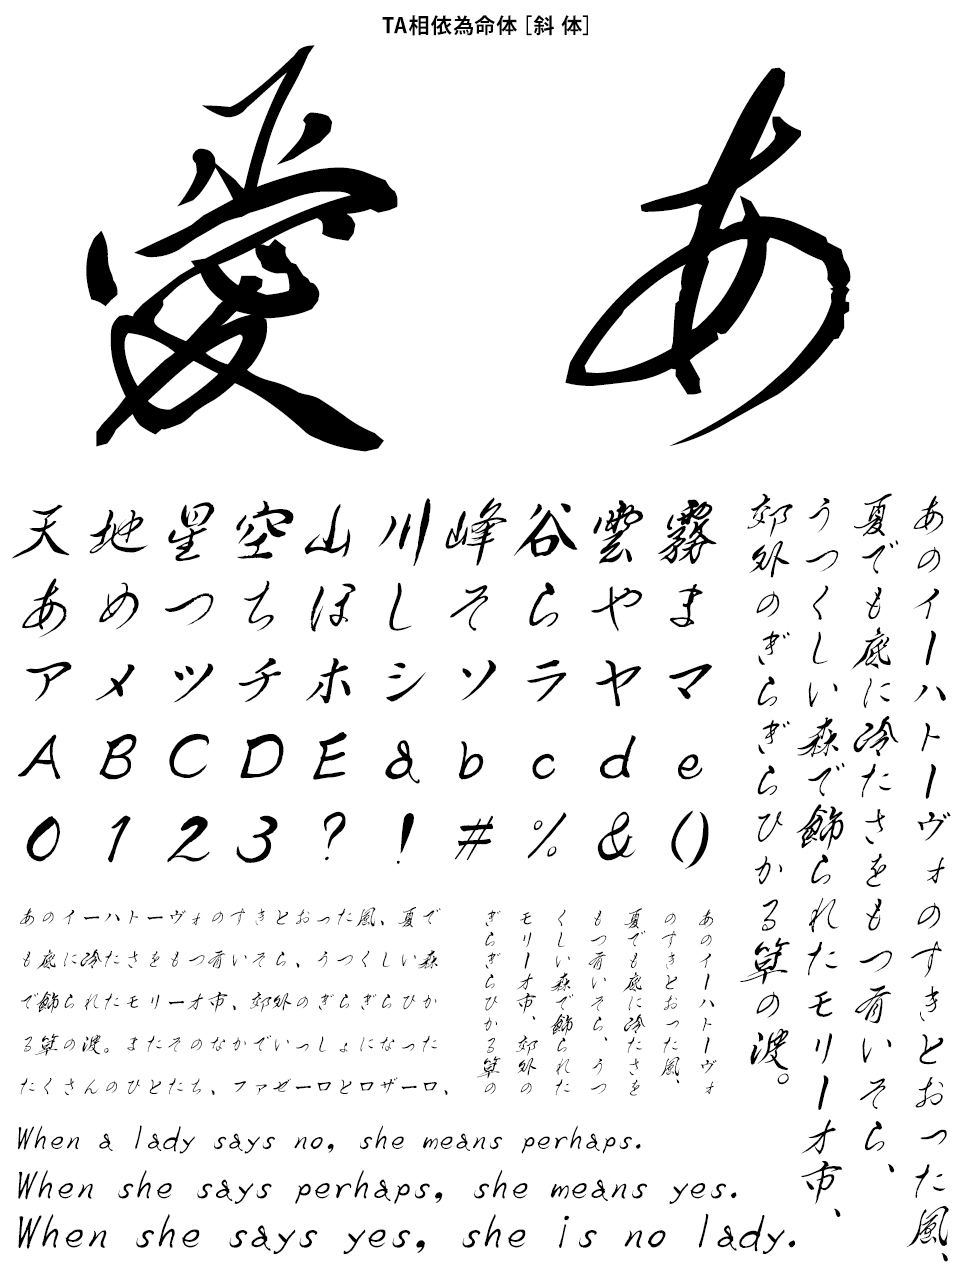 TA相依為命体［斜 体］
愛 あ
天地星空山川峰谷雲霧
あめつちほしそらやま
アメツチホシソラヤマ
ABCDEabcde
0123?!#%&()
あのイーハトーヴォのすきとおった風、
夏でも底に冷たさをもつ青いそら、
うつくしい森で飾られたモリーオ市、
郊外のぎらぎらひかる草の波。
あのイーハトーヴォのすきとおった風、夏で
も底に冷たさをもつ青いそら、うつくしい森
で飾られたモリーオ市、郊外のぎらぎらひか
る草の波。またそのなかでいっしょになった
たくさんのひとたち、ファゼーロとロザーロ、
あのイーハトーヴォ
のすきとおった風、
夏でも底に冷たさを
もつ青いそら、うつ
くしい森で飾られた
モリーオ市、郊外の
ぎらぎらひかる草の
When a lady says no, she means perhaps.
When she says perhaps, she means yes.
When she says yes, she is no lady.